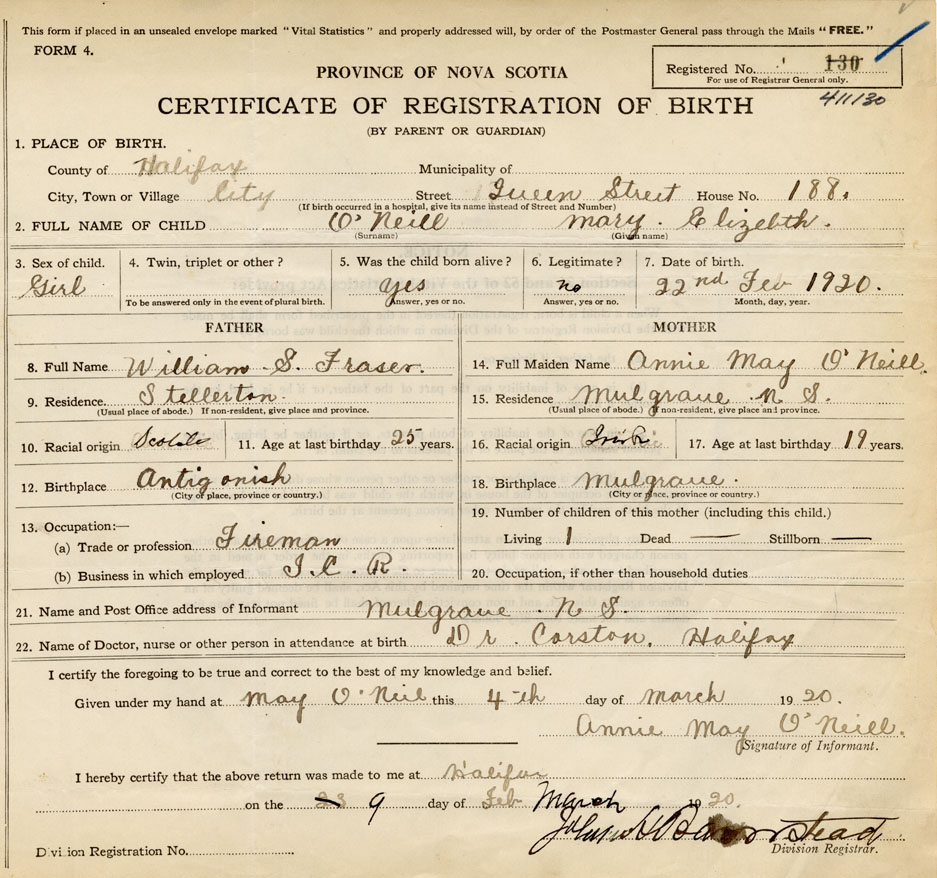 This form if placed in an unsealed envelope marked "Vital Statistics" and properly addressed will, by order of the Postmaster General pass through the Mails "FREE."
FORM 4.
PROVINCE OF NOVA SCOTIA
Registered No. 130
For use of Registrar General only.
CERTIFICATE OF REGISTRATION OF BIRTH
411130
(BY PARENT OR GUARDIAN)
1. PLACE OF BIRTH.
County of Halifax Municipality of
City, Town or Village City Street Queen Street House No. 188.
(If birth occurred in a hospital, give its name instead of Street and Number)
2. FULL NAME OF CHILD O'Neill mary. Elizebth.
(Surname) (Given name)
3. Sex of child. 4. Twin, triplet or other? 5. Was the child born alive? 6. Legitimate? 7. Date of birth.
Girl yes no 22nd Feb 1920.
To be answered only in the event of plural birth. Answer, yes or no. Answer, yes or no. Month, day, year.
FATHER MOTHER
8. Full Name William S. Fraser. 14. Full Maiden Name Annie May O'Neill.
9. Residence. Stellerton. 15. Residence Mulgrave N S.
(Usual place of abode.) If non-resident, give place and province. (Usual place of abode.) If non-resident, give place and province.
10. Racial origin 11. Age at last birthday 25 years. 16. Racial origin Irish 17. Age at last birthday 19 years.
12. Birthplace Antigonish 18. Birthplace Mulgrave.
(City or place, province or country.) (City or place, province or country.)
13. Occupation:— 19. Number of children of this mother (including this child.)
(a) Trade or profession Fireman Living 1 Dead — Stillborn —
(b) Business in which employed I. C. R. 20. Occupation, if other than household duties
21. Name and Post Office address of Informant Mulgrave N S.
22. Name of Doctor, nurse or other person in attendance at birth Dr. Corston, Halifax
I certify the foregoing to be true and correct to the best of my knowledge and belief.
Given under my hand at May O'Neil this 4th day of march 1920.
Annie May O'Neill.
Signature of Informant.
I hereby certify that the above return was made to me at Halifax
on the 23 9 day of Feb March 1920.
Division Registrar.
Division Registration No.